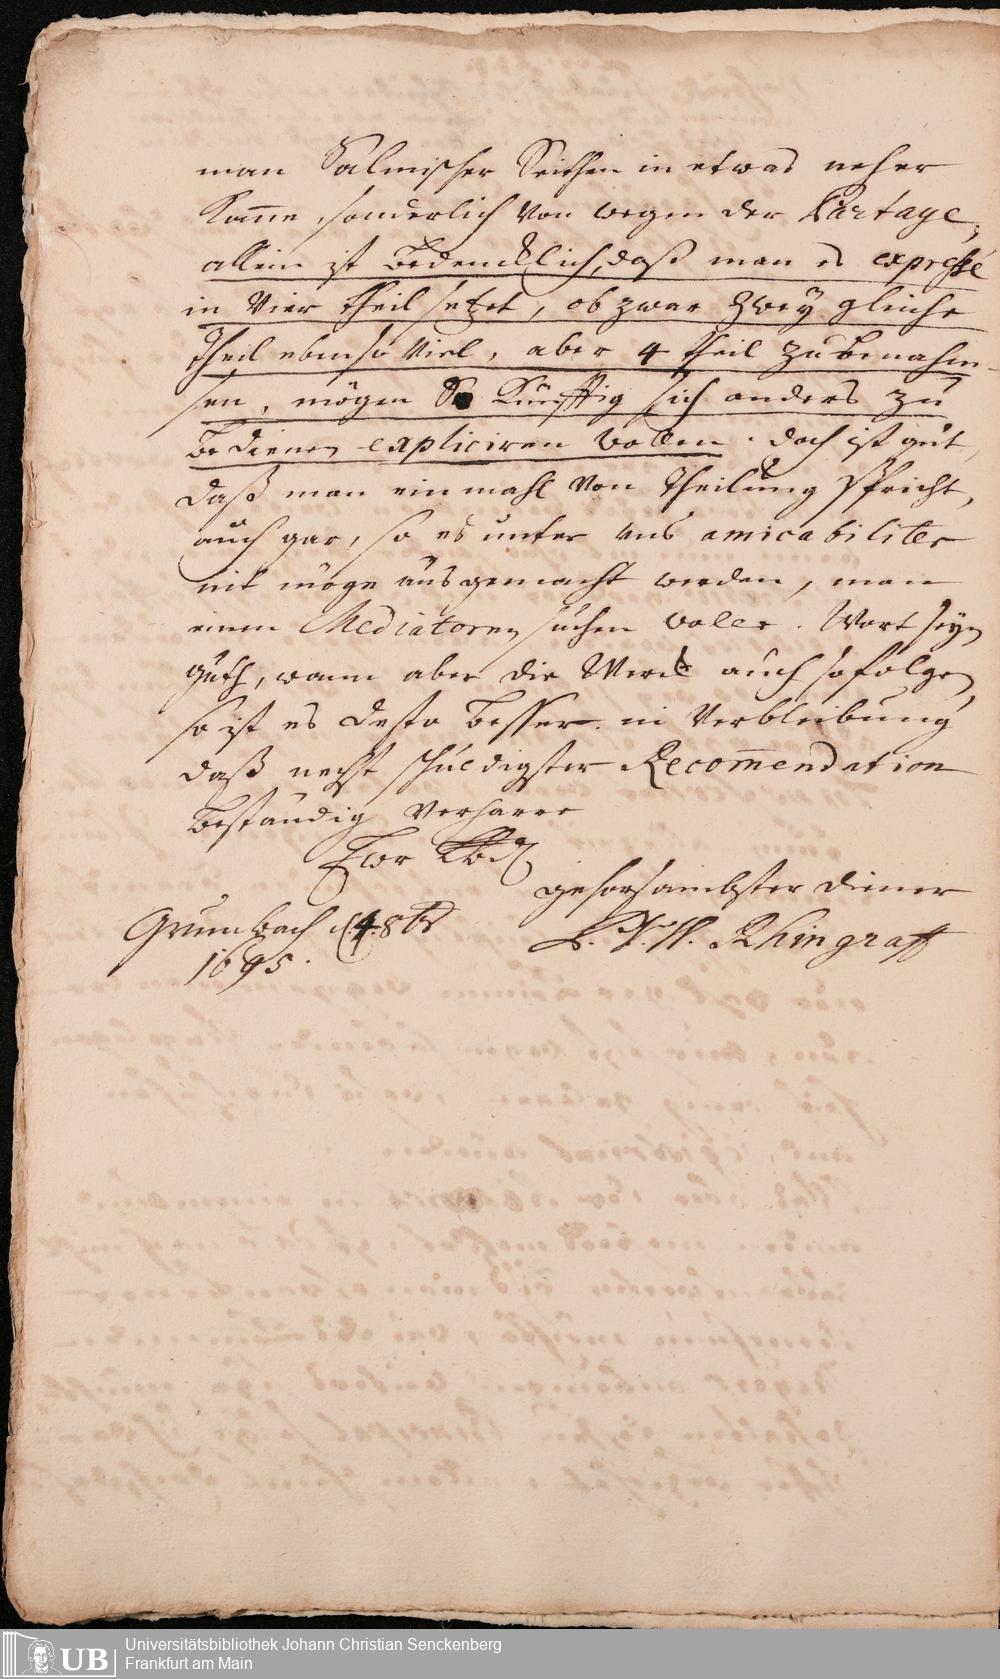 man Salmischer Seithen in etwas neher
Kom̅e, sonderlich von wegen der Partage,
allein ist bedencklich, daß man es expressé
in vier theil setzet, ob zwar zwey gleiche
Theil ebenso viel, aber 4 theil zu benahm-
sen, mögen Sie künfftig sich anders zu
bedienen expliciren wollen. doch ist gut,
daß man ein mahl von Theilung spricht,
auch gar, so es unter uns amicabiliter
nit möge ausgemacht werden, man
einen Mediatoren suchen wolle. Wort seyn
guth, wann aber die Werck auch so folgen,
so ist es desto besser. in Verbleibung
daß nechst schuldigster Recom̅endation
beständig verharre
Ewr Lbd
gehorsambster diener
Grumbach d. 4. 8br
1695.
L. W. Rhingraff
Universitätsbibliothek Johann Christian Senckenberg
Frankfurt am Main
UB